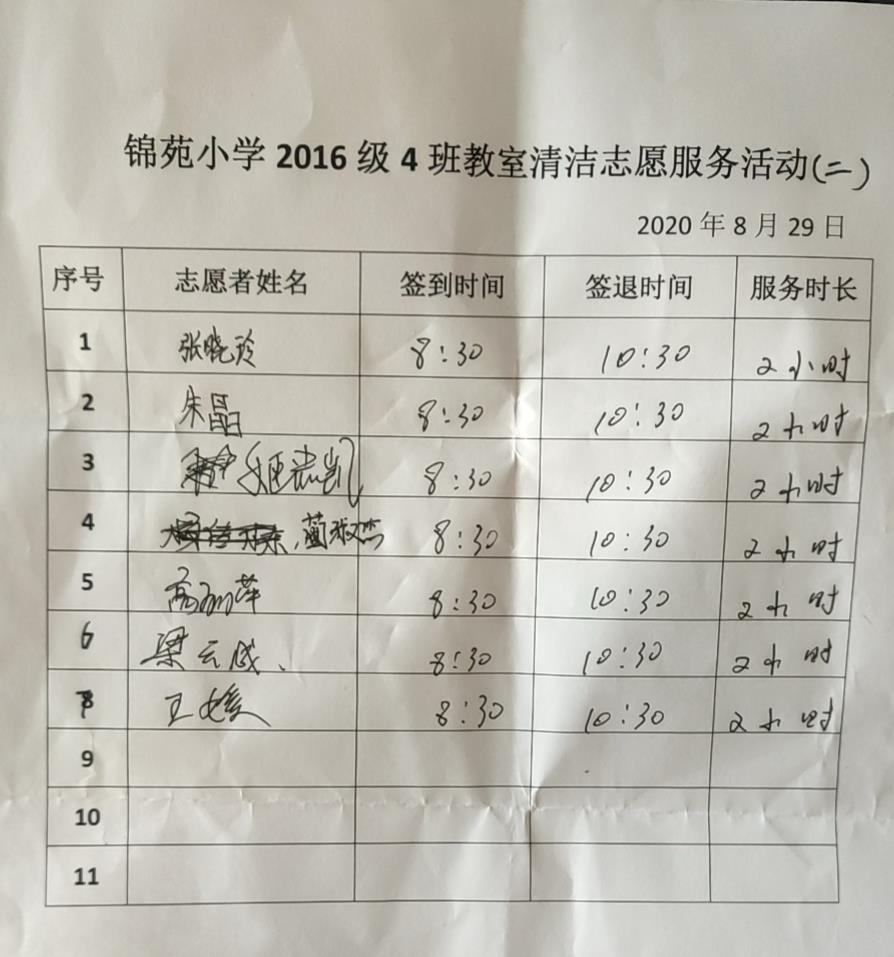 锦苑小学2016级4班教室清洁志愿服务活动(二)
2020年8月29日
序号 志愿者姓名 签到时间 签退时间 服务时长
1 张晓玲 8:30 10:30 2小时
2 朱晶 8:30 10:30 2小时
3 8:30 10:30 2小时
4 8:30 10:30 2小时
5 高丽萍 8:30 10:30 2小时
6 梁云成、 8:30 10:30 2小时
7 王媛 8:30 10:30 2小时
9
10
11